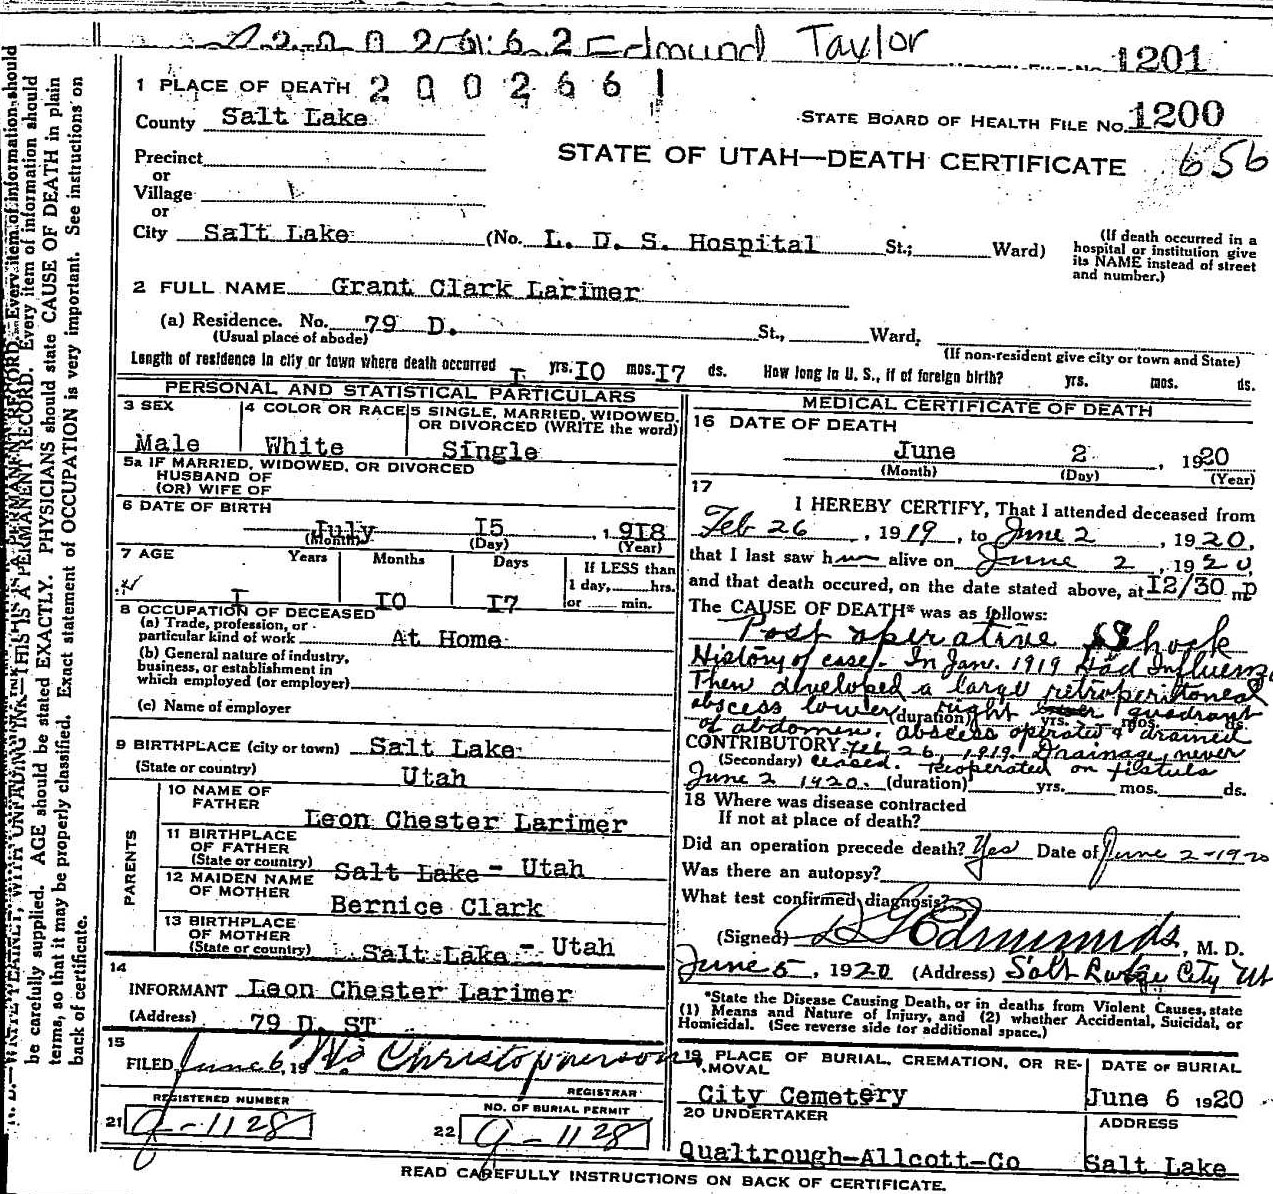 200262 Edmund Taylor 1201
1 PLACE OF DEATH 200261
County Salt Lake
STATE BOARD OF HEALTH FILE No. 1200
Precinct
or
Village
or
STATE OF UTAH—DEATH CERTIFICATE 656
City Salt Lake (No. L. D. S. Hospital St.; Ward)
(If death occurred in a
hospital or institution give
its NAME instead of street
and number.)
2 FULL NAME Grant Clark Larimer
(a) Residence. No. 79 D. St., Ward,
(Usual place of abode)
(If non-resident give city or town and State)
Length of residence in city or town where death occurred I yrs. IO mos. I7 ds. How long in U. S., if of foreign birth? yrs. mos. ds.
PERSONAL AND STATISTICAL PARTICULARS
3 SEX
Male
4 COLOR OR RACE
White
5 SINGLE, MARRIED, WIDOWED,
OR DIVORCED (WRITE the word)
Single
5a IF MARRIED, WIDOWED, OR DIVORCED
HUSBAND OF
(OR) WIFE OF
6 DATE OF BIRTH
July I5, 1 9I8
(Month) (Day) (Year)
7 AGE Years Months Days
I IO I7
If LESS than
1 day, hrs.
or min.
8 OCCUPATION OF DECEASED
(a) Trade, profession, or
particular kind of work At Home
(b) General nature of industry,
business, or establishment in
which employed (or employer)
(c) Name of employer
9 BIRTHPLACE (city or town) Salt Lake
(State or country) Utah
PARENTS
10 NAME OF
FATHER
Leon Chester Larimer
11 BIRTHPLACE
OF FATHER
(State or country) Salt Lake - Utah
12 MAIDEN NAME
OF MOTHER Bernice Clark
13 BIRTHPLACE
OF MOTHER
(State or country) Salt Lake - Utah
14
INFORMANT Leon Chester Larimer
(Address) 79 D. ST
15
FILED June 6, 19
REGISTRAR
REGISTERED NUMBER
21 g-1128
NO. OF BURIAL PERMIT
22 g-1128
MEDICAL CERTIFICATE OF DEATH
16 DATE OF DEATH
June 2, 1920
(Month) (Day) (Year)
17
I HEREBY CERTIFY, That I attended deceased from
Feb 26, 1919, to June 2, 1920,
that I last saw him alive on June 2, 1920,
and that death occured, on the date stated above, at I2/30 m p
The CAUSE OF DEATH* was as follows:
Post operative Shock
History of case. In Jan. 1919 had Influenza
Then developed a large retroperitoneal
abscess lower right quadrant
(duration) yrs. mos. ds.
of abdomen. abscess operated & drained
CONTRIBUTORY Feb 26, 1919. Drainage never
(Secondary) ceased. reoperated on fistula
June 2 1920. (duration) yrs. mos. ds.
18 Where was disease contracted
If not at place of death?
Did an operation precede death? Yes Date of June 2-1920
Was there an autopsy?
What test confirmed diagnosis?
(Signed) Edmunds, M. D.
June 5, 1920 (Address) Salt City Ut
*State the Disease Causing Death, or in deaths from Violent Causes, state
(1) Means and Nature of Injury, and (2) whether Accidental, Suicidal, or
Homicidal. (See reverse side for additional space.)
19 PLACE OF BURIAL, CREMATION, OR RE-
MOVAL
City Cemetery
DATE OF BURIAL
June 6 1920
20 UNDERTAKER
Qualtrough-Allcott-Co
ADDRESS
Salt Lake
READ CAREFULLY INSTRUCTIONS ON BACK OF CERTIFICATE.
N. B.—WRITE PLAINLY, WITH UNFADING INK—THIS IS A PERMANENT RECORD. Every item of information should
be carefully supplied. AGE should be stated EXACTLY. PHYSICIANS should state CAUSE OF DEATH in plain
terms, so that it may be properly classified. Exact statement of OCCUPATION is very important. See instructions on
back of certificate.